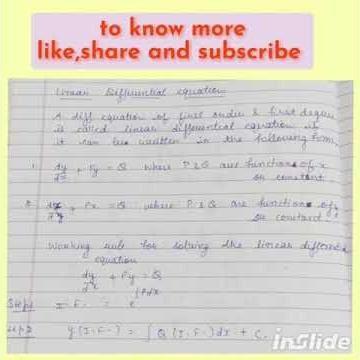 to know more
like,share and subscribe
Linear Differential equation
A diff equation of first order & first degree
is called linear differential equation if
it can be written in the following form,
1. dy/dx + Py = Q where P & Q are function of x
or constant
+ Px = Q where P & Q are function of y
or constant.
Working rule for solving the linear differential
equation
dy/dx + Py = Q
Step 1 I.F. = e^∫Pdx
Step 2 y(I.F.) = ∫Q(I.F.)dx + C.
inSlide